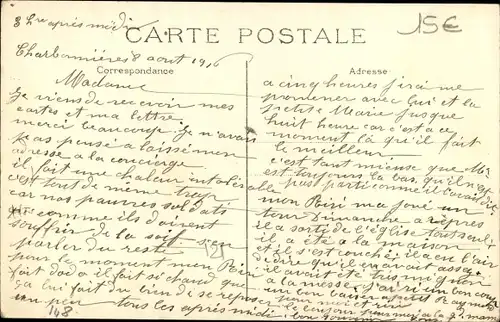 3 hre après midi
15€
CARTE POSTALE
Charbonnières 8 aout 1916
Correspondance
Adresse
Madame
Je viens de recevoir mes
cartes et ma lettre
merci beaucoup je n'avais
pas pensé a laissé mon
adresse a la concierge
il fait une chaleur intolérable
c'est tout de même trop
car nos pauvres soldats
comme ils doivent
souffrir de la soif
parler du reste
pour le moment mon Riri
fait dodo il fait si chaud que
ça lui fait du bien de se reposer
un peu tous les après midi
148
a cinq heures j'irai me
promener avec lui et la
petite Marie jusque
huit heure car c'est a ce
moment là qu'il fait
le meilleur
c'est tant mieux que Mr
est toujours là bas qu'il n'est
pas parti comme il l'avait dit
mon Riri m'a joué un
tour Dimanche après
il a sorti de l'église tout seul
il a été a la maison
il s'est couché il a eu l'air
il avait été très mignon